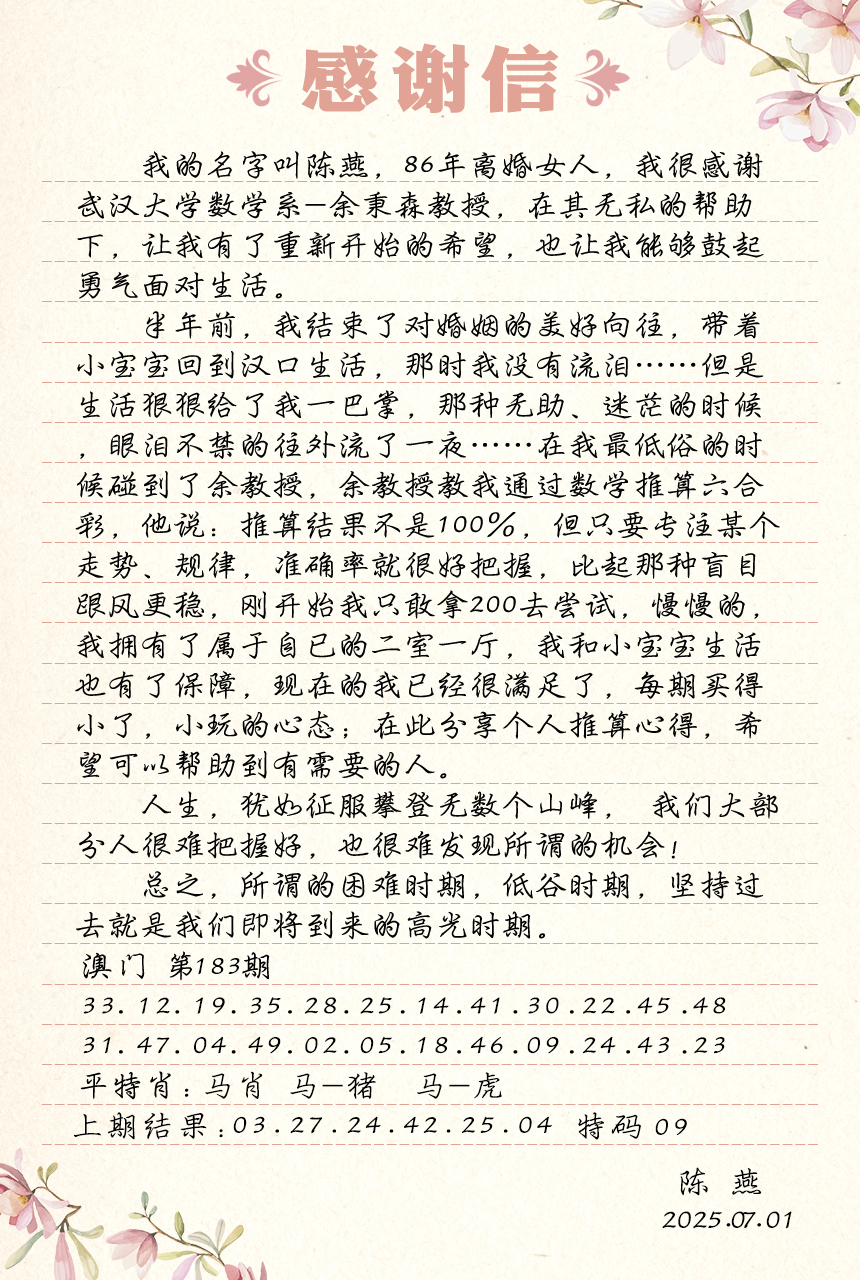 感谢信
我的名字叫陈燕，86年离婚女人，我很感谢
武汉大学数学系—余秉森教授，在其无私的帮助
下，让我有了重新开始的希望，也让我能够鼓起
勇气面对生活。
半年前，我结束了对婚姻的美好向往，带着
小宝宝回到汉口生活，那时我没有流泪……但是
生活狠狠给了我一巴掌，那种无助、迷茫的时候
，眼泪不禁的往外流了一夜……在我最低俗的时
候碰到了余教授，余教授教我通过数学推算六合
彩，他说：推算结果不是100%，但只要专注某个
走势、规律，准确率就很好把握，比起那种盲目
跟风更稳，刚开始我只敢拿200去尝试，慢慢的，
我拥有了属于自已的二室一厅，我和小宝宝生活
也有了保障，现在的我已经很满足了，每期买得
小了，小玩的心态；在此分享个人推算心得，希
望可以帮助到有需要的人。
人生，犹如征服攀登无数个山峰， 我们大部
分人很难把握好，也很难发现所谓的机会！
总之，所谓的困难时期，低谷时期，坚持过
去就是我们即将到来的高光时期。
澳门 第183期
33.12.19.35.28.25.14.41.30.22.45.48
31.47.04.49.02.05.18.46.09.24.43.23
平特肖：马肖 马—猪 马—虎
上期结果：03.27.24.42.25.04 特码 09
陈 燕
2025.07.01